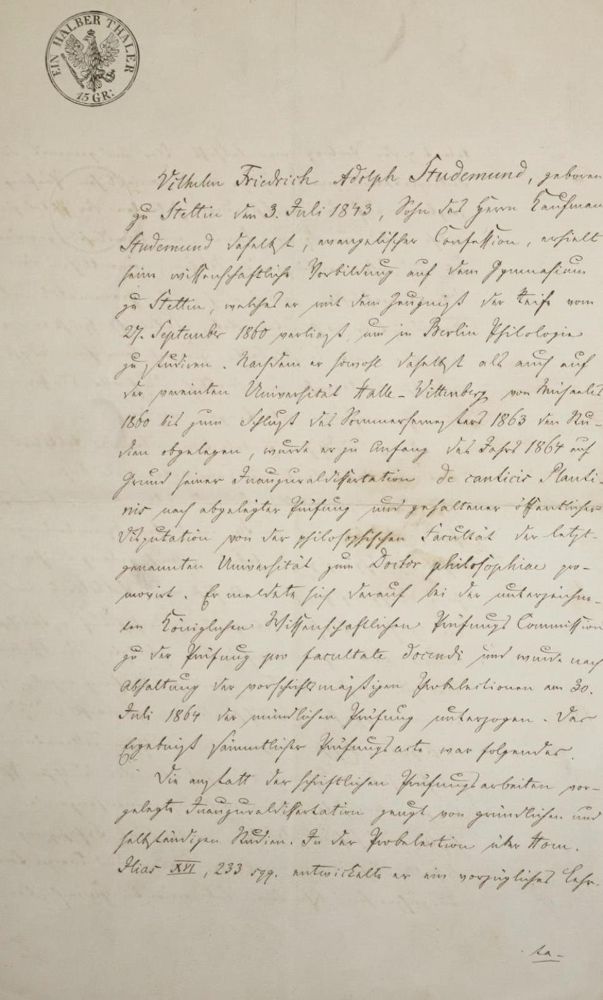 EIN HALBER THALER
15 GR:
Wilhelm Friedrich Adolph Studemund, geboren
zu Stettin den 3. Juli 1843, Sohn des Herrn Kaufmann
Studemund daselbst, evangelischer Confession, erhielt
seine wissenschaftliche Vorbildung auf dem Gymnasium
zu Stettin, welches er mit dem Zeugnisse der Reife vom
27. September 1860 verliess, um in Berlin Philologie
zu studiren. Nachdem er sowohl daselbst als auch auf
der vereinten Universität Halle-Wittenberg von Michaelis
1860 bis zum Schlusse des Sommersemesters 1863 den Stu-
dien obgelegen, wurde er zu Anfang des Jahrs 1864 auf
Grund seiner Inauguraldissertation de canticis Plauti-
nis nach abgelegter Prüfung und gehaltener öffentlicher
Disputation von der philosophischen Facultät der letzt-
genannten Universität zum Doctor philosophiae pro-
movirt. Er meldete sich darauf bei der unterzeichne-
ten Königlichen Wissenschaftlichen Prüfungs Commission
zu der Prüfung pro facultate docendi und wurde nach
Abhaltung der vorschriftsmäßigen Probelectionen am 30.
Juli 1864 der mündlichen Prüfung unterzogen. Das
Ergebniß sämmtlicher Prüfungsacte war folgendes.
Die anstatt der schriftlichen Prüfungsarbeiten vor-
gelegte Inauguraldissertation zeugt von gründlichen und
selbständigen Studien. In der Probelection über Hom.
Ilias XVI, 233 sqq. entwickelte er ein vorzügliches Lehr-
ta-